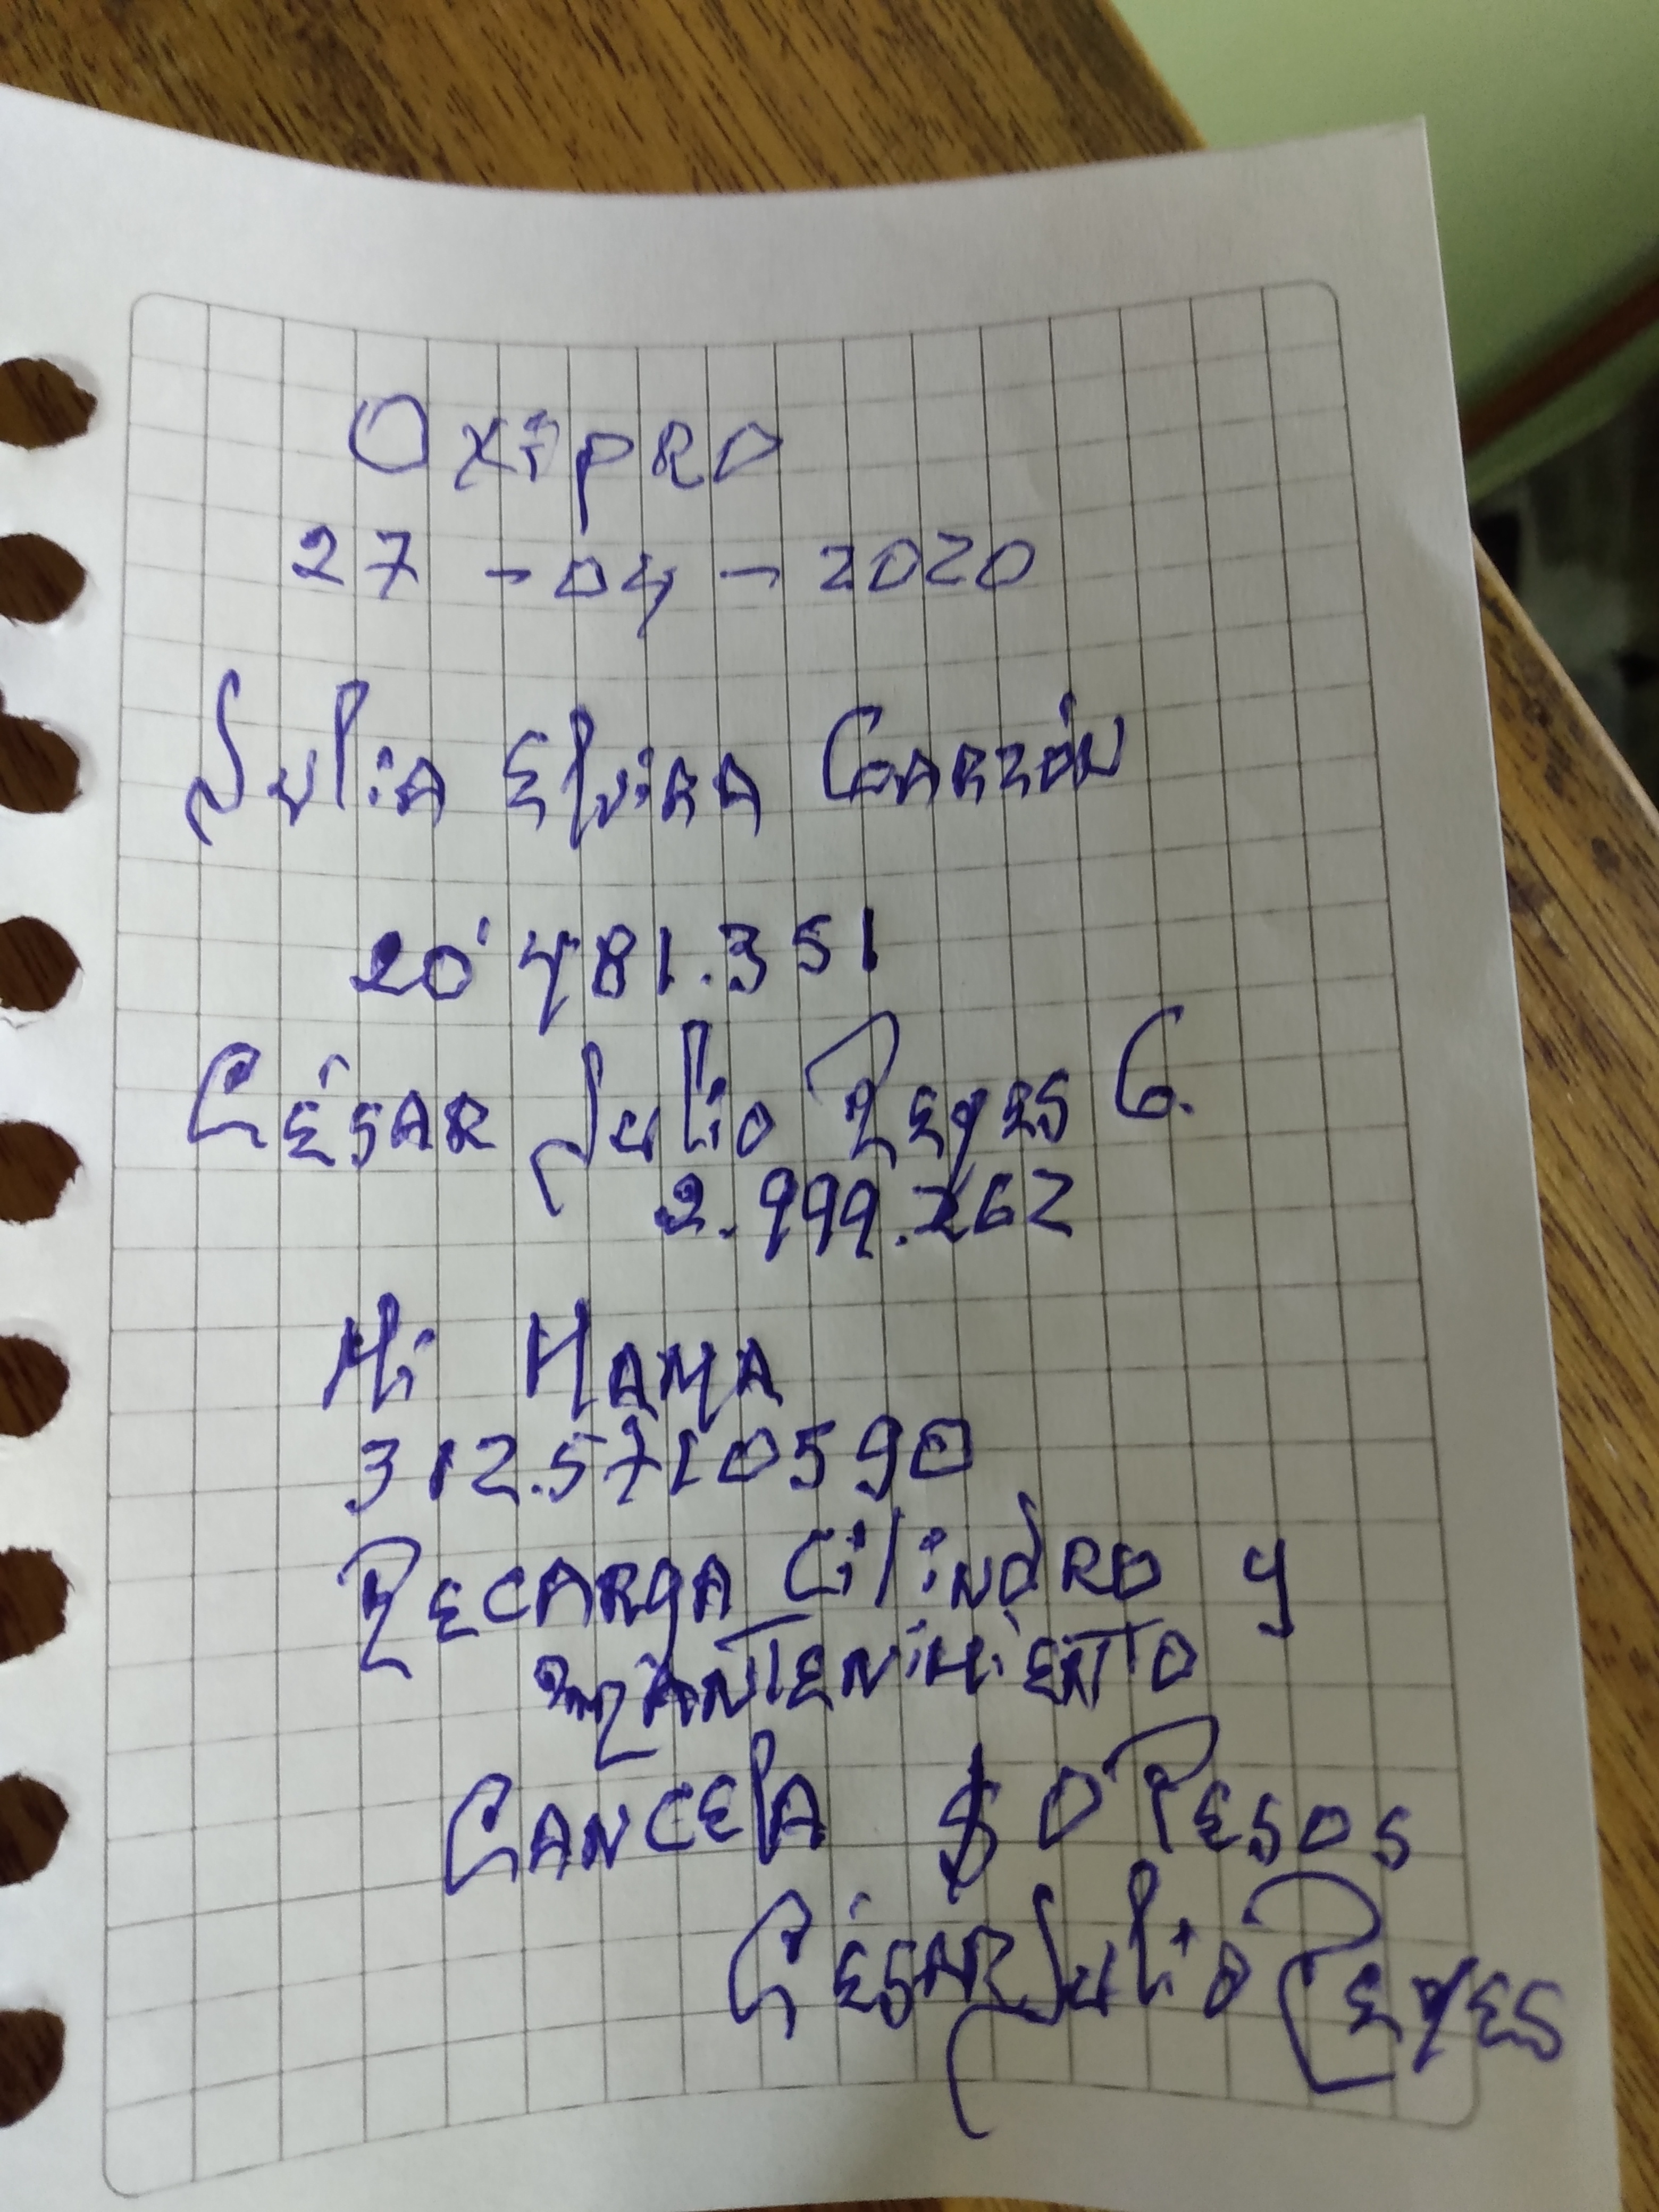 OxipRO
27 - 04 - 2020
Julia Elvira Garzón
20'481.351
César Julio Reyes G.
2.999.262
Mi Mama
312.5710590
Recarga Cilindro y
mantenimiento
Cancela $ 0 Pesos
César Julio Reyes